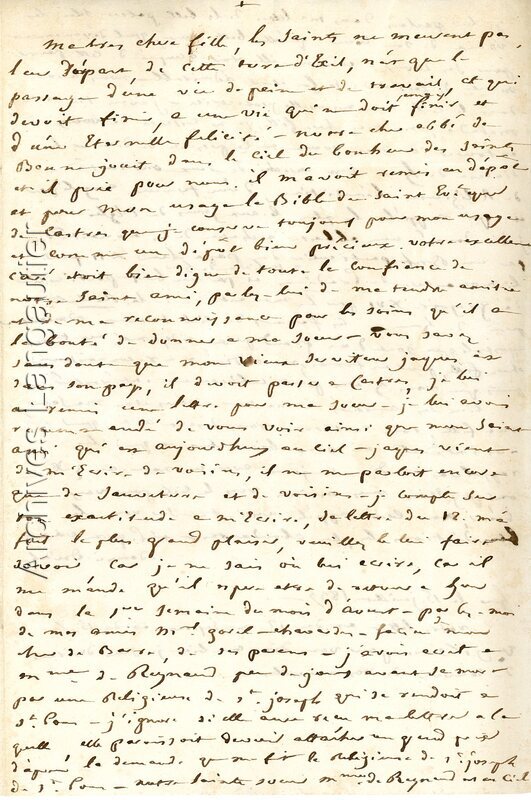 +
ma tres chere fille, les Saints ne meurent pas,
leur Départ de cette terre d'Exil, n'est que le
passage d'une vie de peine et de travail, et qui
devoit finir, a une vie qui ne doit finir et
d'une Eternelle felicité - notre cher abbé de
Bonne jouit dans le Ciel du bonheur des Saints
et il prie pour nous. il m'avoit remis en dépôt
et pour mon usage la Bible du Saint Evêque
de Castres que je conserve toujours pour mon usage
et comme un dépôt bien précieux. votre excellent
curé étoit bien digne de toute la confiance de
notre Saint ami, parlez-lui de ma tendre amitié
et de ma reconnoissance pour les soins qu'il a
la bonté de donner a ma Soeur - vous savez
sans doute que mon vieux Serviteur jaques est
dans son pays, il devoit passer a Castres, je lui
ai remis une lettre pour ma Soeur - je lui avois
recommandé de vous voir ainsi que notre Saint
ami qui est aujourdhuy au Ciel - jaques vient
de m'Ecrire de voisins, il ne me parloit encore
que de Sauveterre et de voisins - je compte sur
son exactitude a m'Ecrire, Sa lettre du 12 m'a
fait le plus grand plaisir, veuillez le lui faire
savoir car je ne sais où lui ecrire, car il
me mande qu'il espere etre de retour a
dans la 1ere Semaine du mois d'avout - parlez-moi
de mes amis
cher de Barre, de ses parens - j'avois ecrit a
mme de Reynaud peu de jours avant sa mort
par une Religieuse de St. joseph qui se rendoit a
St. Pons - j'ignore si elle aura reçu ma lettre a la
quelle elle paroissoit devoir attacher un grand prix
d'après la demande que me fit la Religieuse de St. joseph
de St. Pons - notre Sainte soeur mme de Reynaud est au Ciel
www.delcampe.net